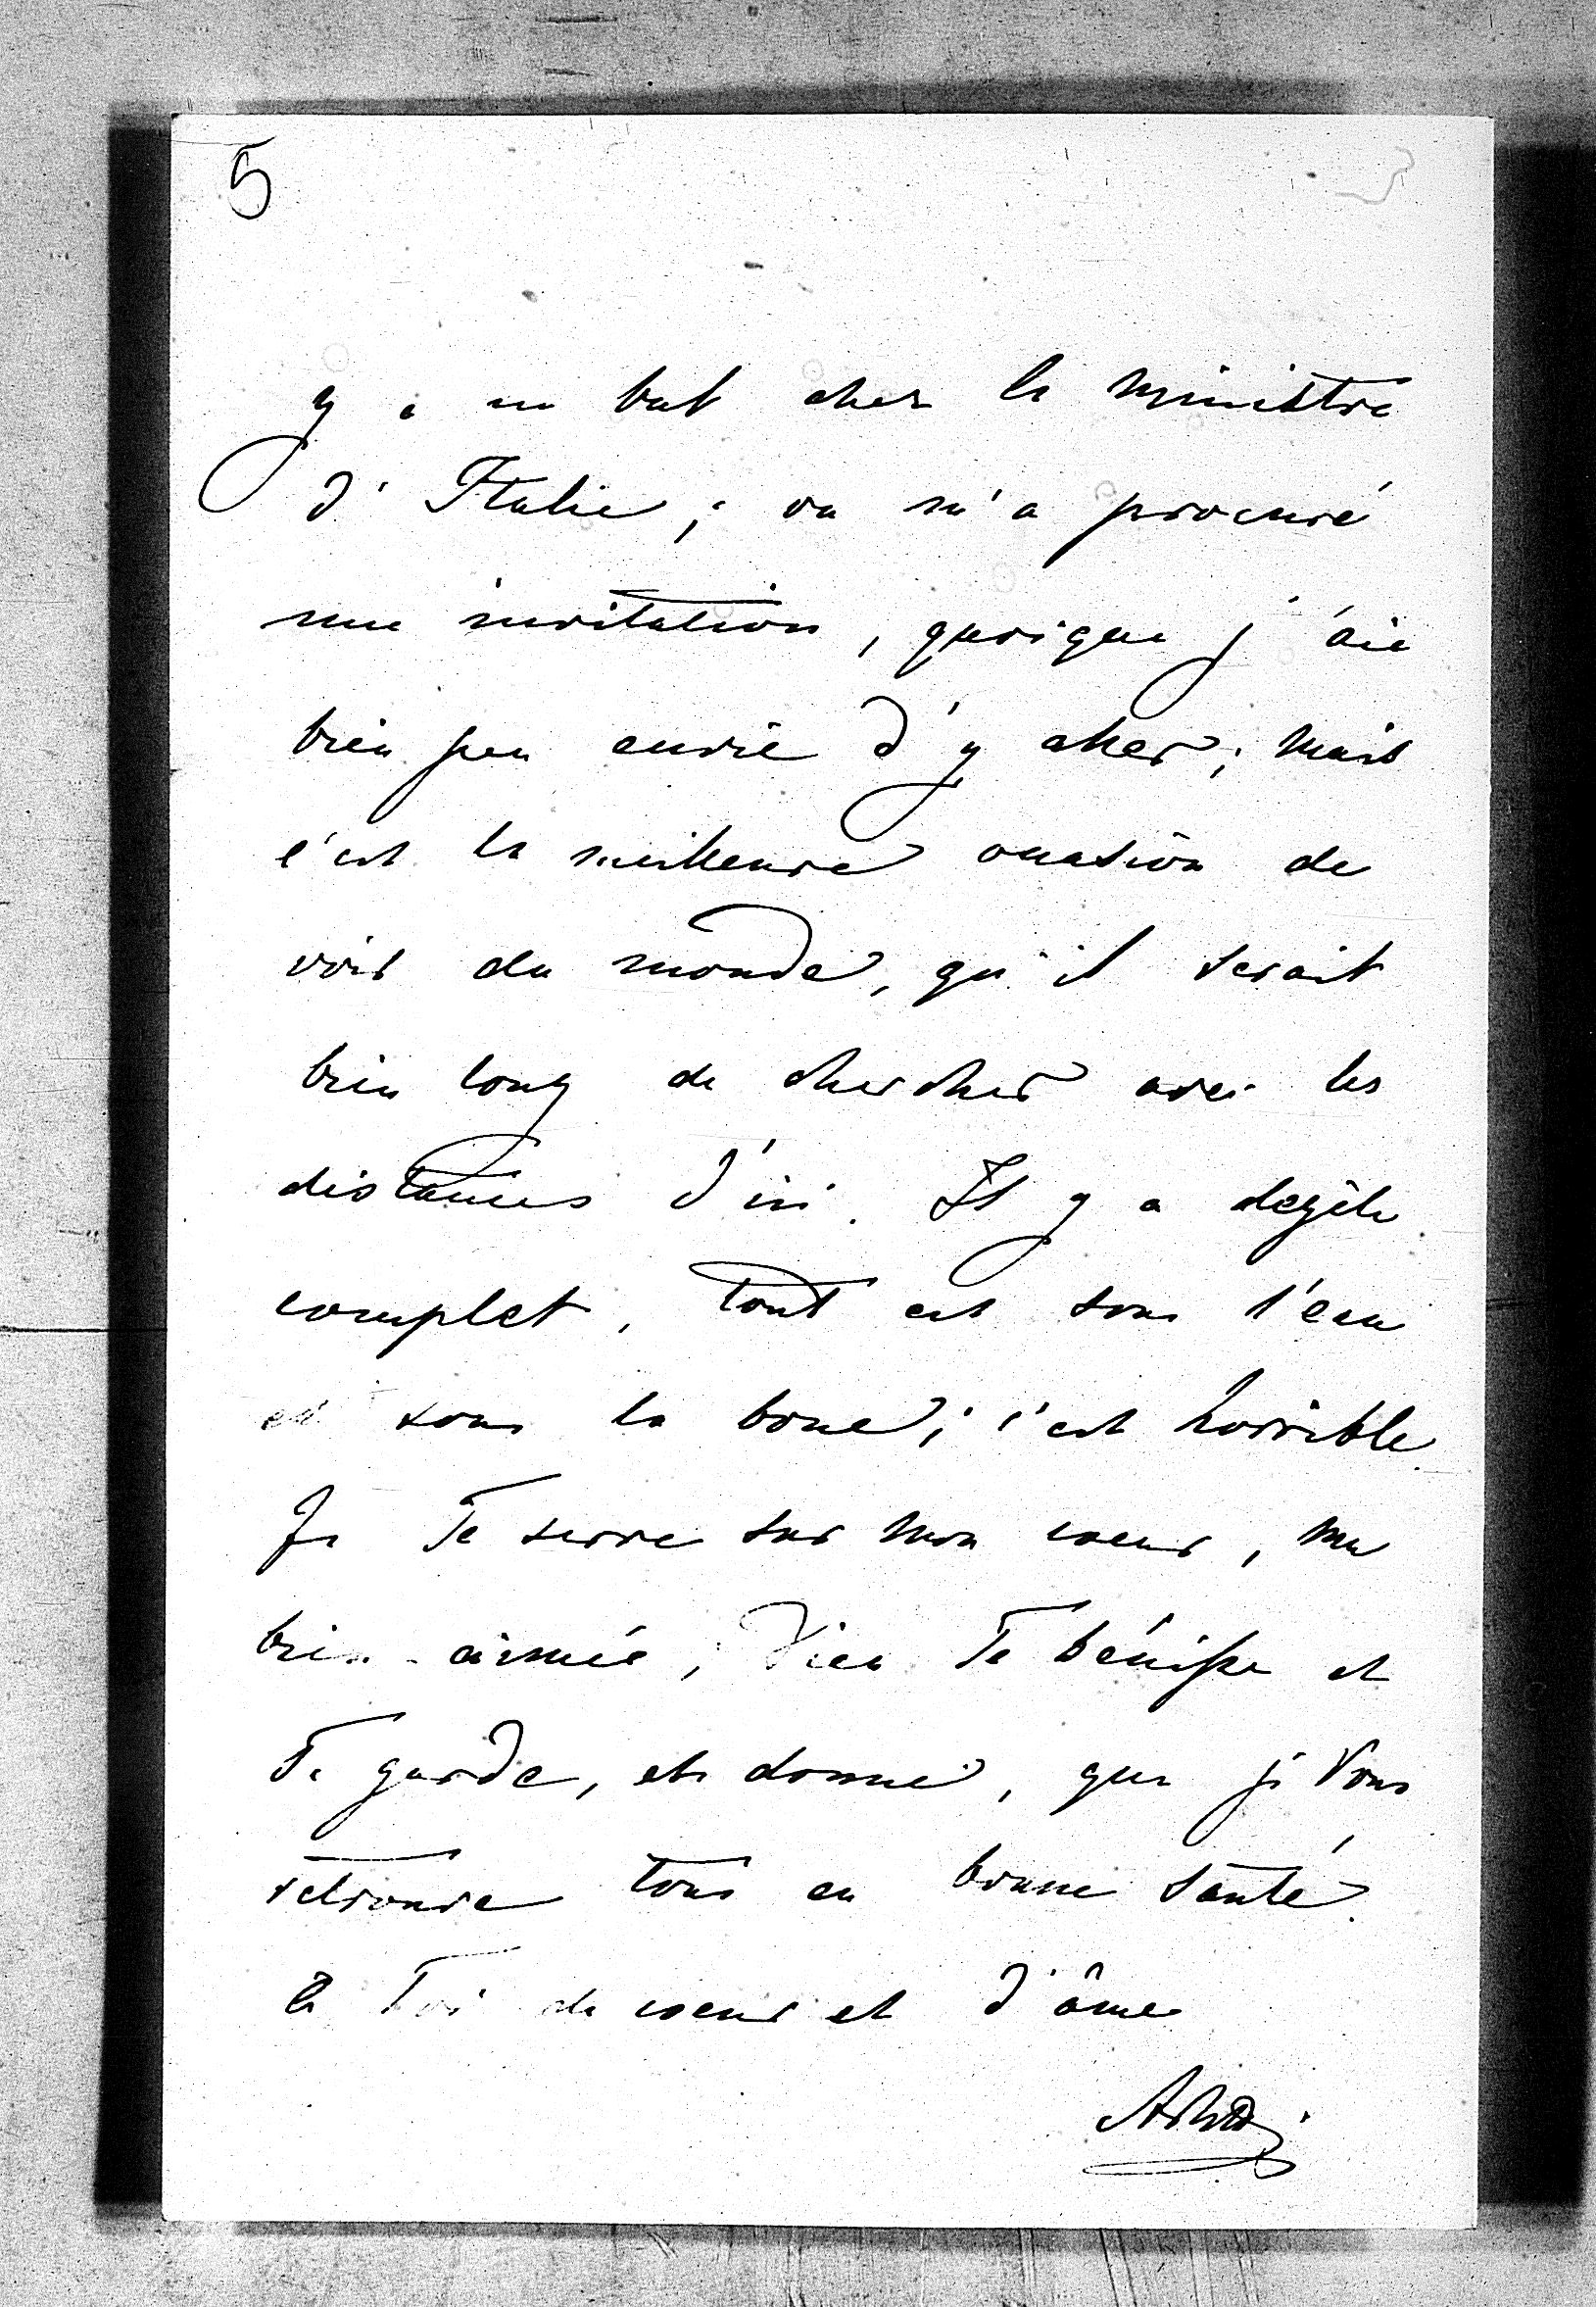 5
y a un bal chez le Ministre
d'Italie; on m'a procuré
une invitation, quoique j'aie
bien peu envie d'y aller; mais
c'est la meilleure occasion de
voir du monde, qu'il serait
bien long de chercher avec les
distances d'ici. Il y a dégèle
complet, tout est sous l'eau
et sous la boue; c'est horrible.
Je Te serre sur mon coeur, ma
bien-aimée, Dieu Te bénisse et
Te garde, et donne, que je Vous
retrouve tous en bonne santé.
à Toi de coeur et d'âme